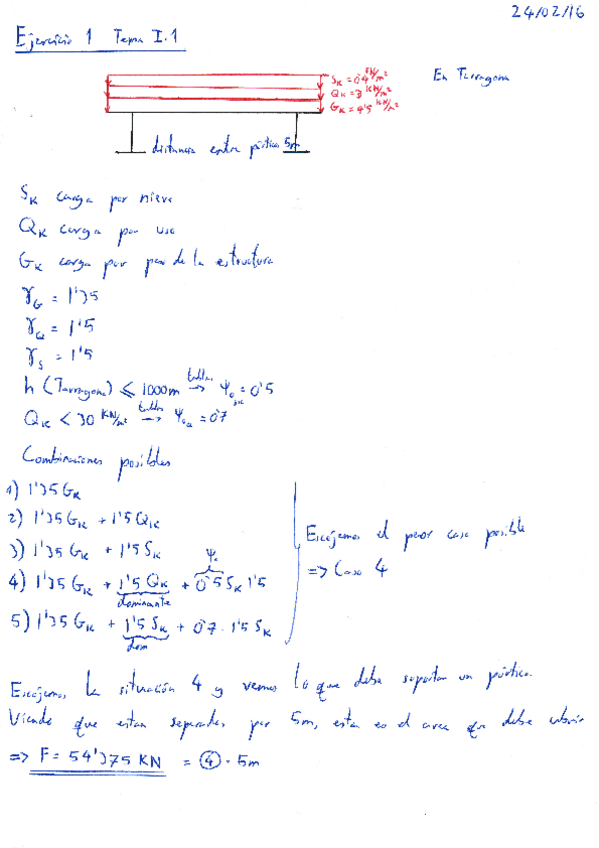 24/02/16
Ejercicio 1 Tema I.1
SK = 0'4 KN/m²
QK = 3 KN/m²
GK = 4'5 KN/m²
En Tarragona
distancia entre pórticos 5m
SK carga por nieve
QK carga por uso
GK carga por peso de la estructura
γG = 1'35
γQ = 1'5
γS = 1'5
h (Tarragona) ≤ 1000m tablas → Ψ0 = 0'5
QK < 30 KN/m² tablas → Ψ0 = 0'7
Combinaciones posibles
1) 1'35 GK
2) 1'35 GK + 1'5 QK
3) 1'35 GK + 1'5 SK
Ψ0
4) 1'35 GK + 1'5 QK + 0'5 SK 1'5
dominante
5) 1'35 GK + 1'5 SK + 0'7 · 1'5 SK
dom
Escójemos el peor caso posible
=> Caso 4
Escójemos la situación 4 y vemos lo que debe soportar un pórtico.
Viendo que estan separados por 5m, esta es el area que debe cubrir
=> F = 54'375 KN = ④ · 5m